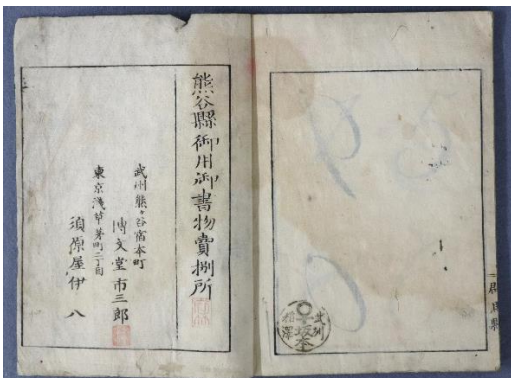 坂本
熊谷縣御用御書物賣捌所
武州熊ヶ谷宿本町
博文堂市三郎
東京淺草茅町二丁目
須原屋伊八